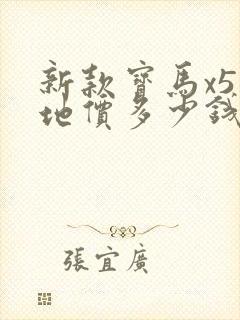 新款寶馬x5
地價多少錢
張宜廣